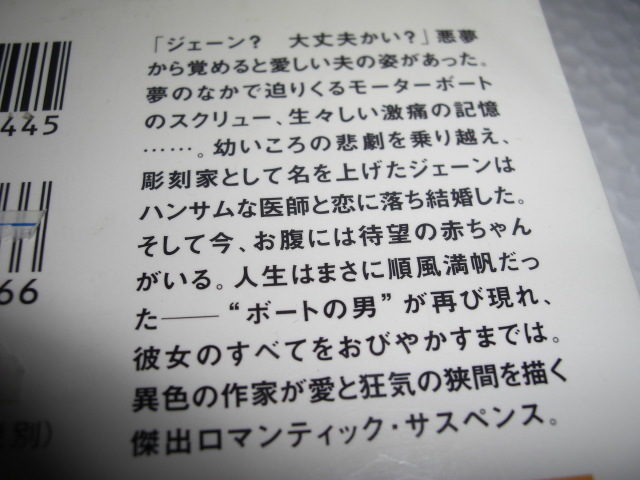 「ジェーン？　大丈夫かい？」悪夢
から覚めると愛しい夫の姿があった。
夢のなかで迫りくるモーターボート
のスクリュー、生々しい激痛の記憶
……。幼いころの悲劇を乗り越え、
彫刻家として名を上げたジェーンは
ハンサムな医師と恋に落ち結婚した。
そして今、お腹には待望の赤ちゃん
がいる。人生はまさに順風満帆だっ
た――“ボートの男”が再び現れ、
彼女のすべてをおびやかすまでは。
異色の作家が愛と狂気の狭間を描く
傑出ロマンティック・サスペンス。
445
66
別）